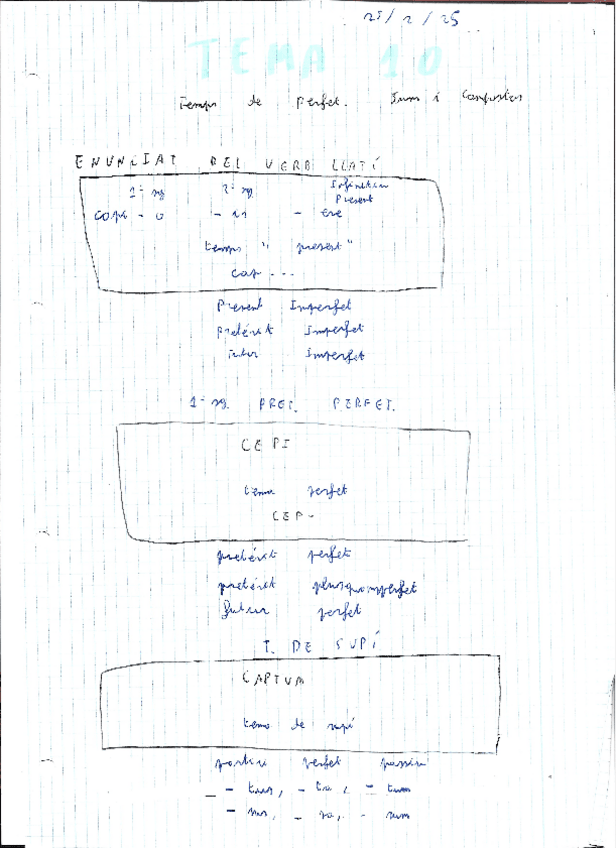 25/2/25
TEMA 10
Temps de Perfet. Sum i Compostos
ENUNCIAT DEL VERB LLATÍ
1ª sg 2ª sg Infinitiu
Present
capi-o -is -ere
tema "present"
cap...
Present Imperfet
Pretèrit Imperfet
Futur Imperfet
1ª sg. PRET. PERFET.
CEPI
tema perfet
CEP-
pretèrit perfet
pretèrit plusquamperfet
futur perfet
T. DE SUPÍ
CAPTUM
tema de supí
perfet passiu
- tus, - ta, - tum
- sus, - sa, - sum